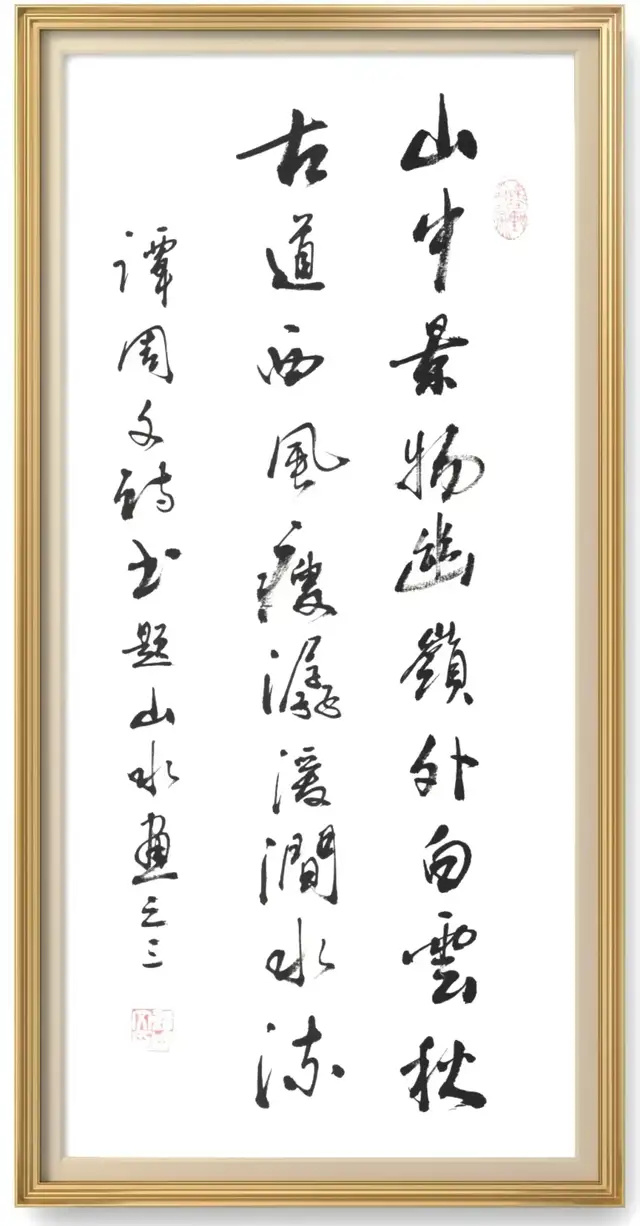 山中景物幽嶺外白雲秋
古道西風瘦潺湲澗水流
譚周文詩书題山水畫之三